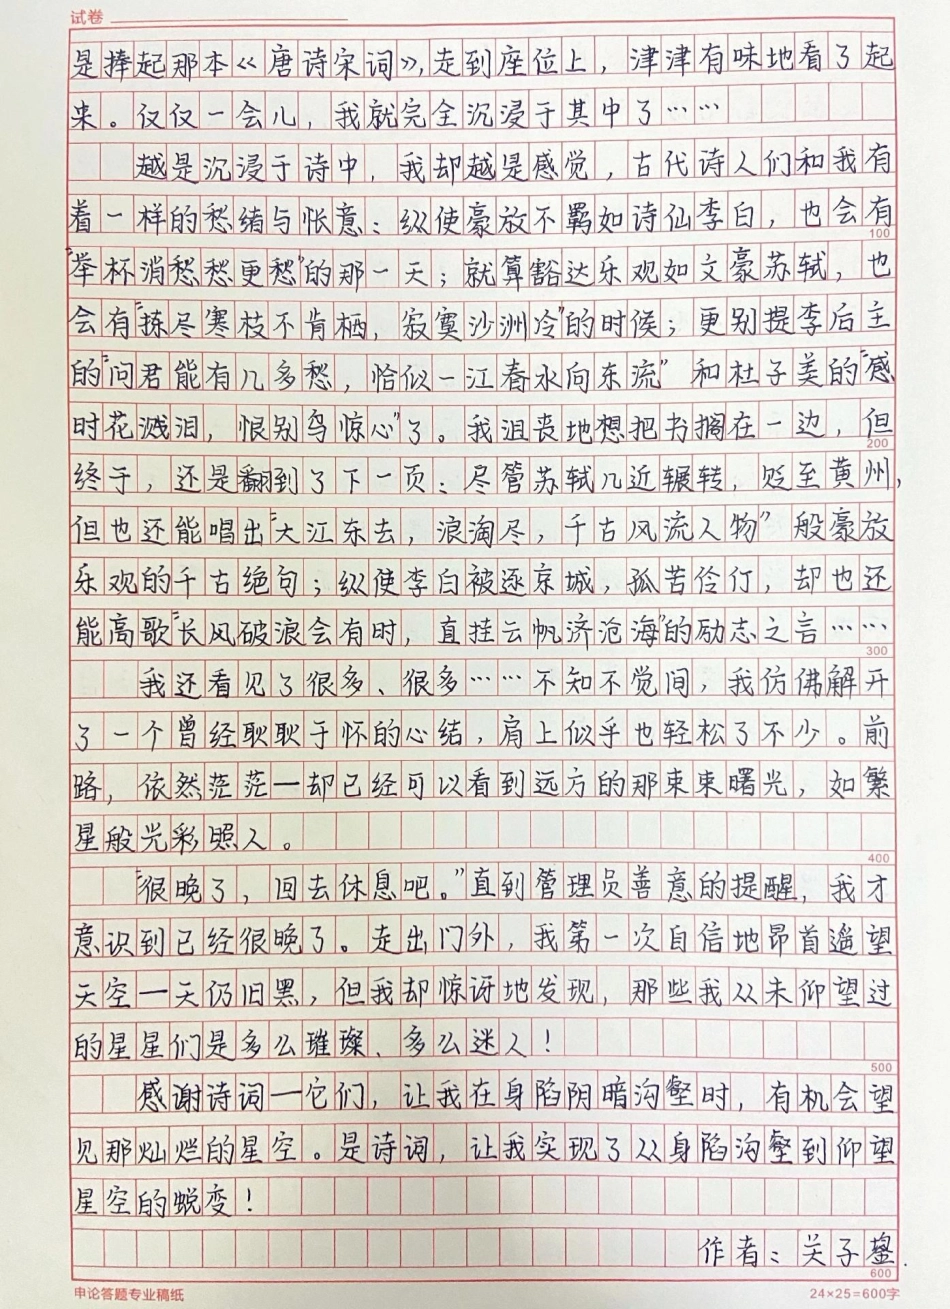 试卷
是捧起那本《唐诗宋词》,走到座位上，津津有味地看了起
来。仅仅一会儿，我就完全沉浸于其中了……
越是沉浸于诗中，我却越是感觉，古代诗人们和我有
着一样的愁绪与怅意：纵使豪放不羁如诗仙李白，也会有
100
“举杯消愁愁更愁”的那一天；就算豁达乐观如文豪苏轼，也
会有“拣尽寒枝不肯栖，寂寞沙洲冷”的时候；更别提李后主
的“问君能有几多愁，恰似一江春水向东流”和杜子美的“感
时花溅泪，恨别鸟惊心”了。我沮丧地想把书搁在一边，但
200
终于，还是翻到了下一页：尽管苏轼几近辗转，贬至黄州，
但也还能唱出“大江东去，浪淘尽，千古风流人物”般豪放
乐观的千古绝句；纵使李白被逐京城，孤苦伶仃，却也还
能高歌“长风破浪会有时，直挂云帆济沧海”的励志之言……
300
我还看见了很多、很多……不知不觉间，我仿佛解开
了一个曾经耿耿于怀的心结，肩上似乎也轻松了不少。前
路，依然茫茫—却已经可以看到远方的那束束曙光，如繁
星般光彩照人。
400
“很晚了，回去休息吧。”直到管理员善意的提醒，我才
意识到已经很晚了。走出门外，我第一次自信地昂首遥望
天空—天仍旧黑，但我却惊讶地发现，那些我从未仰望过
的星星们是多么璀璨、多么迷人！
500
感谢诗词—它们，让我在身陷阴暗沟壑时，有机会望
见那灿烂的星空。是诗词，让我实现了从身陷沟壑到仰望
星空的蜕变！
作者：关子鋆.
600
申论答题专业稿纸
24×25=600字